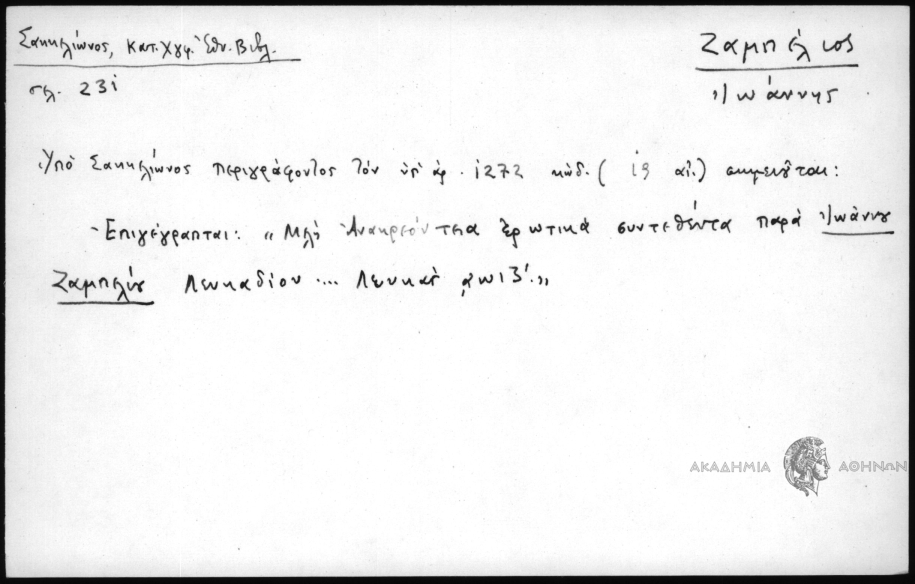 Σακκελίωνος, Κατ. Χγφ. Ἐθν. Βιβλ.
σελ. 231
Ζαμπέλιος
Ἰωάννης
Ὑπὸ Σακκελίωνος περιγράφοντος τὸν ὑπ' ἀρ. 1272 κώδ. (19 αἰ.) σημειοῦται:
Ἐπιγέγραπται: „Μέλη Ἀνακρεόντεια ἐρωτικὰ συντεθέντα παρὰ Ἰωάννου
Ζαμπελίου Λευκαδίου .... Λευκὰς ͵αωιβ'.„
ΑΚΑΔΗΜΙΑ ΑΘΗΝΩΝ